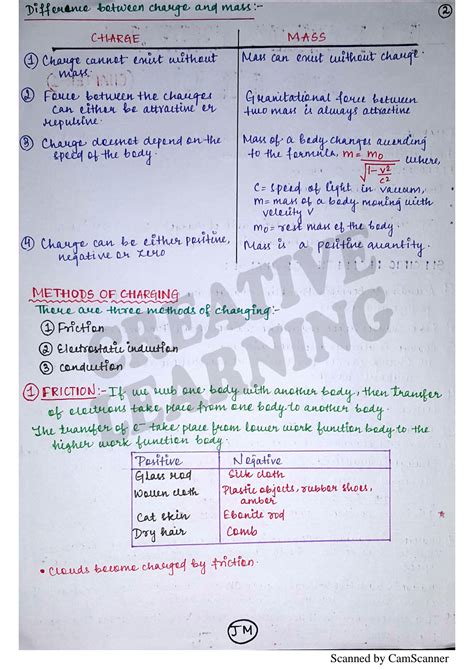 Difference between charge and mass:-
2
CHARGE
MASS
① Charge cannot exist without
mass.
Mass can exist without charge.
② Force between the charges
can either be attractive or
repulsive.
Gravitational force between
two mass is always attractive
③ Charge doesnot depend on the
speed of the body.
Mass of a body changes according
to the formula, m = m₀/√(1-v²/c²) where,
C = speed of light in vacuum,
m = mass of a body moving with
velocity v
m₀ = rest mass of the body.
④ Charge can be either positive,
negative or zero
Mass is a positive quantity.
METHODS OF CHARGING
There are three methods of charging:-
① Friction
② Electrostatic induction
③ conduction
CREATIVE
LEARNING
① FRICTION:- If we rub one body with another body, then transfer
of electrons take place from one body to another body.
The transfer of e⁻ take place from lower work function body to the
higher work function body.
Positive
Negative
Glass rod
Silk cloth
Wollen cloth
Plastic objects, rubber shoes,
amber
Cat skin
Ebonite rod
Dry hair
Comb
• Clouds become charged by friction.
JM
Scanned by CamScanner